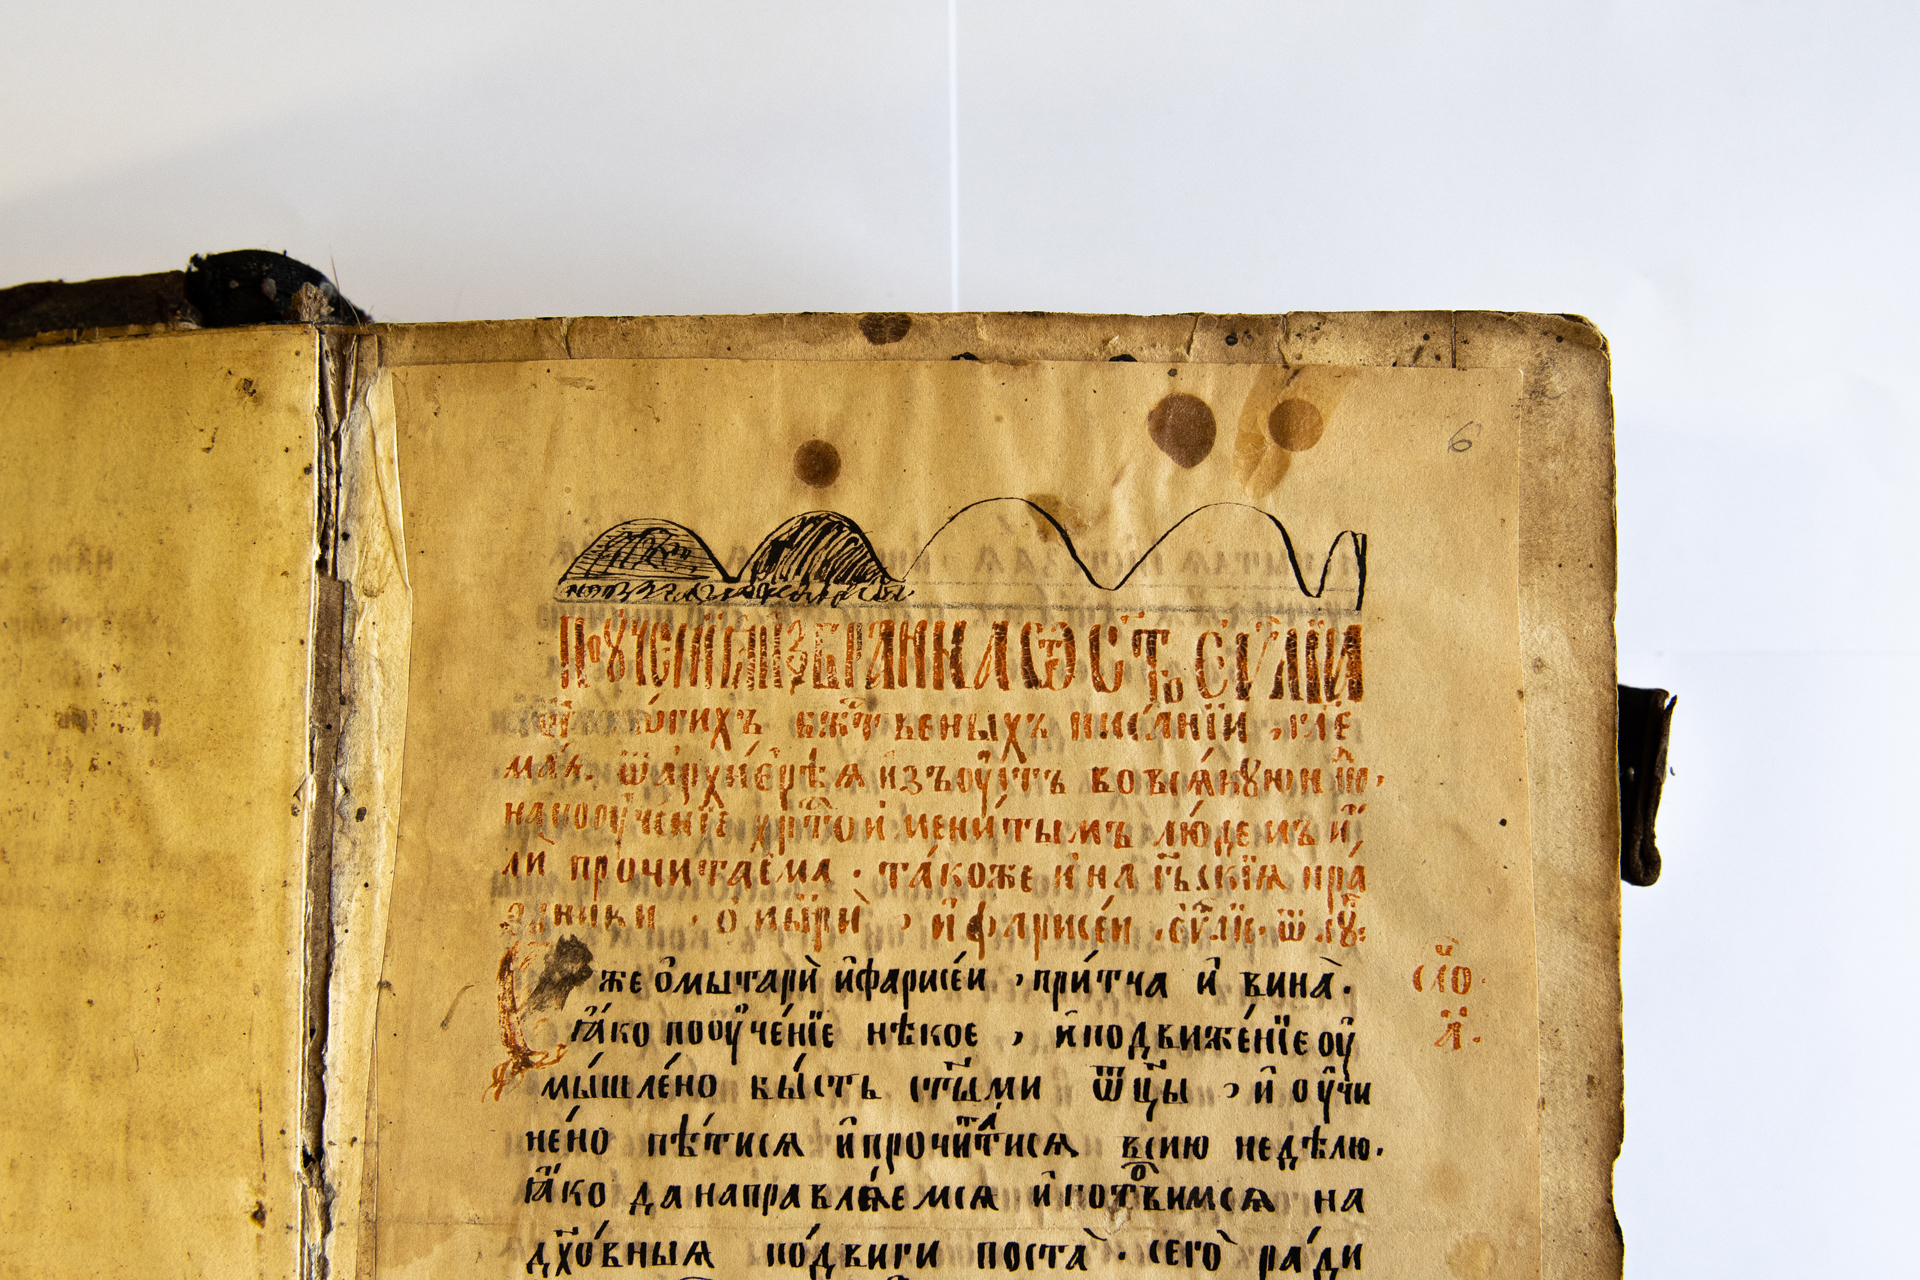 6
Поꙋченїѧ избраннаѧ ѿ ст҃го є҆ѵⷢ҇лїѧ
мно́гихъ бж҃твьеныхъ писа́нїи, гл҃е
маѧ. ѿ а҆рхїере́ѧ и҆зъ ᲂу҆стъ во всѧ́кꙋю н҃лю,
на поᲂуче́нїе хрⷭ҇тои҆мени́тымъ лю́демъ и҆
ли прочита́ема · та́коже и҆ на гⷭ҇ьскїѧ пра́
здники , ѡ҆ мытари̑ , и҆ фарисе́и , є҆ѵⷢ҇лїе ѿ лꙋ:
же ѡ҆ мытари̑ и҆ фарисе́и , при́тча и҆ вина̀.
ꙗ҆́ко поᲂуче́нїе нѣ́кое , и҆ подвиже́нїе ᲂу҆
мы́шлено бы́сть ст҃ы́ми ѿц҃ы , и҆ ᲂу҆чи
не́но пѣ́тисѧ и҆ прочита́тисѧ в сию неде́лю.
ꙗ҆́ко да направлѧ́емсѧ и҆ гото́вимсѧ на
дх҃о́вныѧ по́двиги поста̀ · сего̀ ра́ди
сло́
а҃.